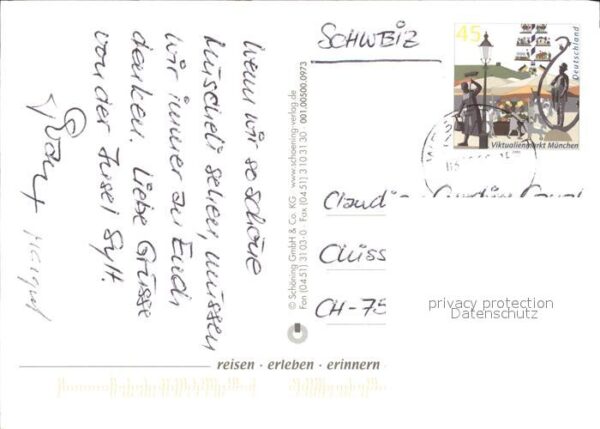 Wenn wir so schöne
Muscheli sehen, müssen
wir immer an Euch
denken. Liebe Grüsse
von der Insel Sylt.
Margret
© Schöning GmbH & Co. KG www.schoening-verlag.de
Fon (04 51) 31 03-0 Fax (04 51) 3 10 31 30 001.00500.0973
SCHWEIZ
45
Deutschland
Viktualienmarkt München
Claudi
CH-75
privacy protection
Datenschutz
reisen · erleben · erinnern